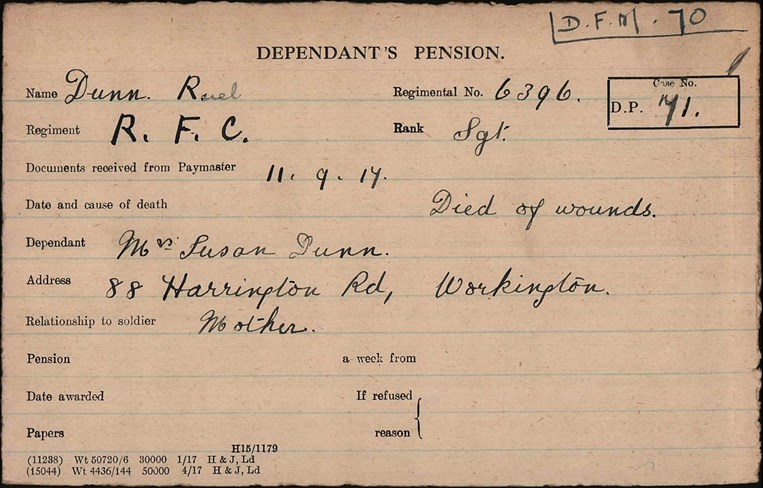 D.F.M. 70
DEPENDANT'S PENSION.
Name Dunn. Ruel Regimental No. 6396. Case No.
Regiment R. F. C. Rank Sgt. D.P. 71.
Documents received from Paymaster 11. 9. 17.
Date and cause of death Died of wounds.
Dependant Mrs Susan Dunn.
Address 88 Harrington Rd, Workington.
Relationship to soldier Mother.
Pension a week from
Date awarded If refused
Papers reason {
H15/1179
(11238) Wt 50720/6 30000 1/17 H & J, Ld
(15044) Wt 4436/144 50000 4/17 H & J, Ld